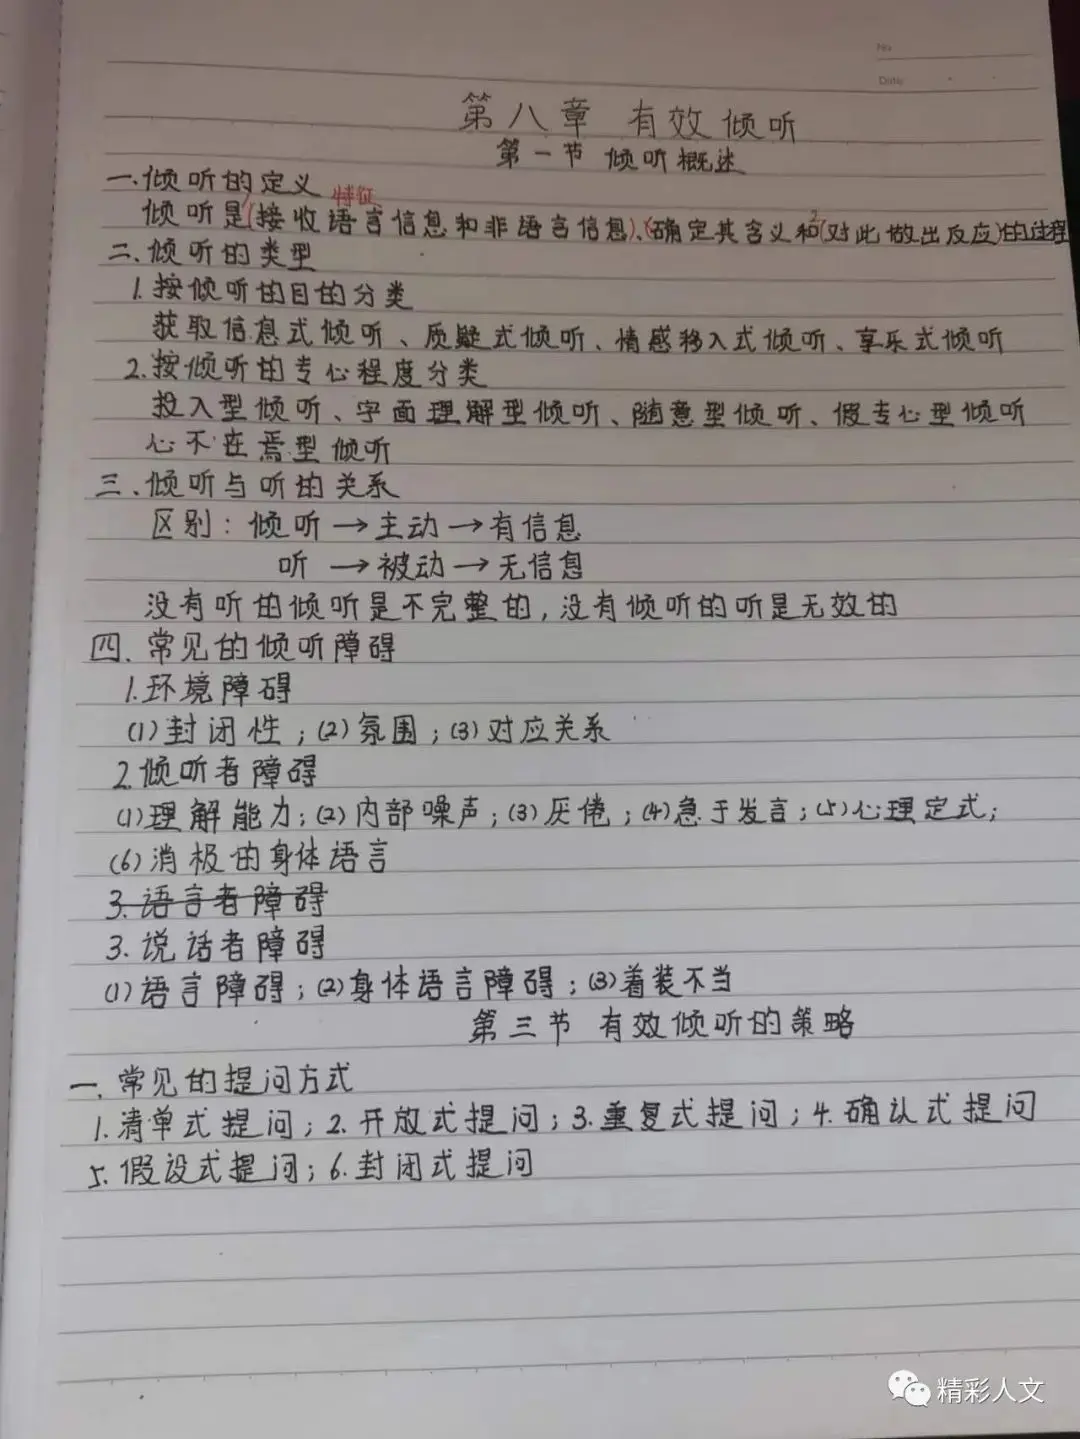 No
Date
第八章 有效倾听
第一节 倾听概述
一.倾听的定义
特征
倾听是(接收语言信息和非语言信息)、(确定其含义和(对此做出反应)的过程
二、倾听的类型
1.按倾听的目的分类
获取信息式倾听、质疑式倾听、情感移入式倾听、享乐式倾听
2.按倾听的专心程度分类
投入型倾听、字面理解型倾听、随意型倾听、假专心型倾听
心不在焉型倾听
三、倾听与听的关系
区别: 倾听→主动→有信息
听 →被动→无信息
没有听的倾听是不完整的,没有倾听的听是无效的
四、常见的倾听障碍
1.环境障碍
(1)封闭性;(2)氛围;(3)对应关系
2.倾听者障碍
(1)理解能力;(2)内部噪声;(3)厌倦;(4)急于发言;(5)心理定式;
(6)消极的身体语言
3.语言者障碍
3.说话者障碍
(1)语言障碍;(2)身体语言障碍;(3)着装不当
第三节 有效倾听的策略
一、常见的提问方式
1.清单式提问;2.开放式提问;3.重复式提问;4.确认式提问
5.假设式提问;6.封闭式提问
精彩人文